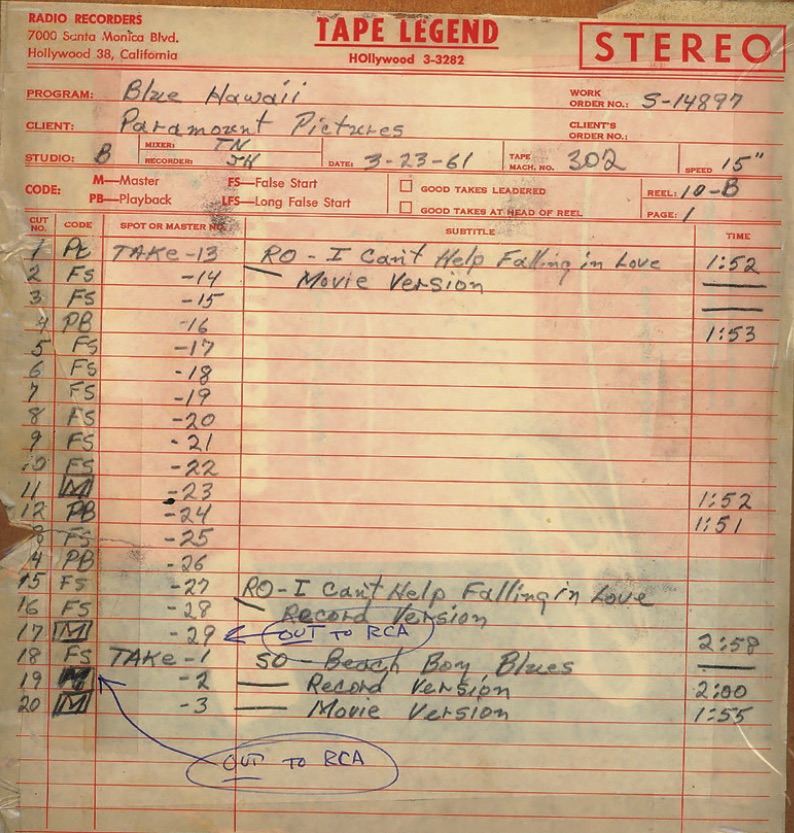 RADIO RECORDERS
7000 Santa Monica Blvd.
Hollywood 38, California
TAPE LEGEND
HOllywood 3-3282
STEREO
PROGRAM: Blue Hawaii
WORK ORDER NO.: S-14897
CLIENT: Paramount Pictures
CLIENT'S ORDER NO.:
STUDIO: B MIXER: TN RECORDER: JK DATE: 3-23-61 TAPE MACH. NO. 302 SPEED 15"
CODE: M—Master FS—False Start GOOD TAKES LEADERED REEL: 10-B
PB—Playback LFS—Long False Start GOOD TAKES AT HEAD OF REEL PAGE: 1
CUT NO. CODE SPOT OR MASTER NO. SUBTITLE TIME
1 TAKE -13 RO - I Can't Help Falling in Love 1:52
2 FS -14 — Movie Version —
3 FS -15 —
4 PB -16 1:53
5 FS -17
6 FS -18
7 FS -19
8 FS -20
9 FS -21
10 FS -22
11 M -23 1:52
12 PB -24 1:51
3 FS -25
4 PB -26
15 FS -27 RO - I Can't Help Falling in Love
16 FS -28 — Record Version
17 M -29 OUT TO RCA 2:58
18 FS TAKE -1 SO — Beach Boy Blues —
19 M -2 — Record Version 2:00
20 M -3 — Movie Version 1:55
OUT TO RCA